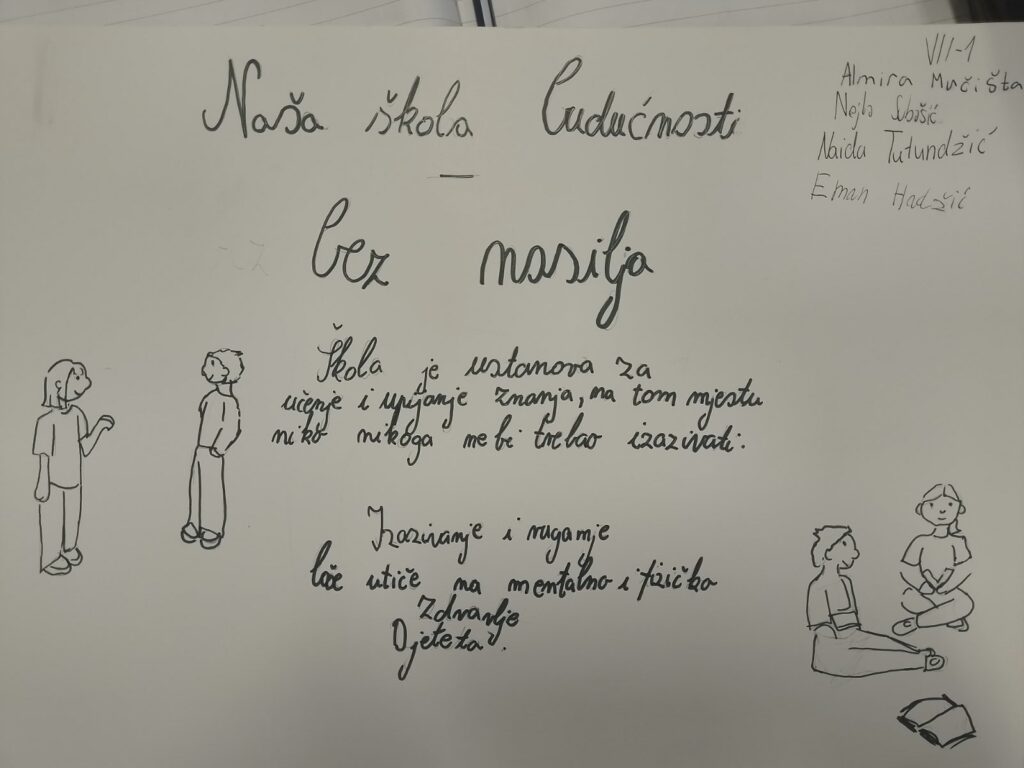 Naša škola budućnosti
—
bez nasilja
Škola je ustanova za
učenje i upijanje znanja, na tom mjestu
niko nikoga ne bi trebao izazivati.
Izazivanje i ruganje
loše utiče na mentalno i fizičko
zdravlje
Djeteta.
VII-1
Almira Mučišta
Nejla Subašić
Naida Tutundžić
Eman Hadžić